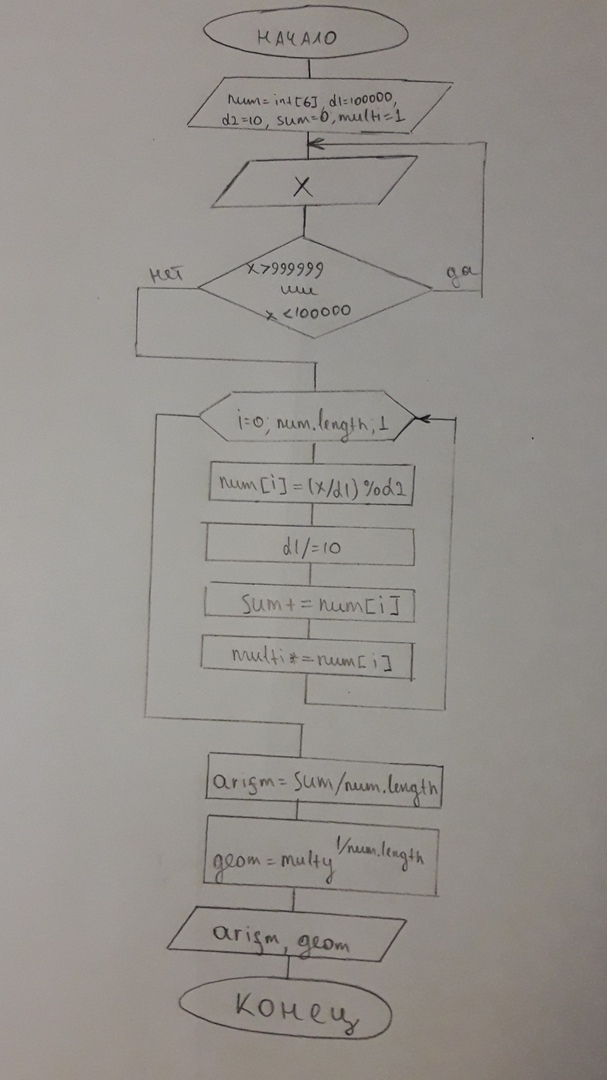 НАЧАЛО
num=int[6], d1=100000,
d2=10, sum=0, multi=1
X
x>999999
или
x<100000
нет
да
i=0; num.length; 1
num[i]=(x/d1)%d2
d1/=10
sum+=num[i]
multi*=num[i]
arigm=sum/num.length
geom=multy^1/num.length
arigm, geom
КОНЕЦ